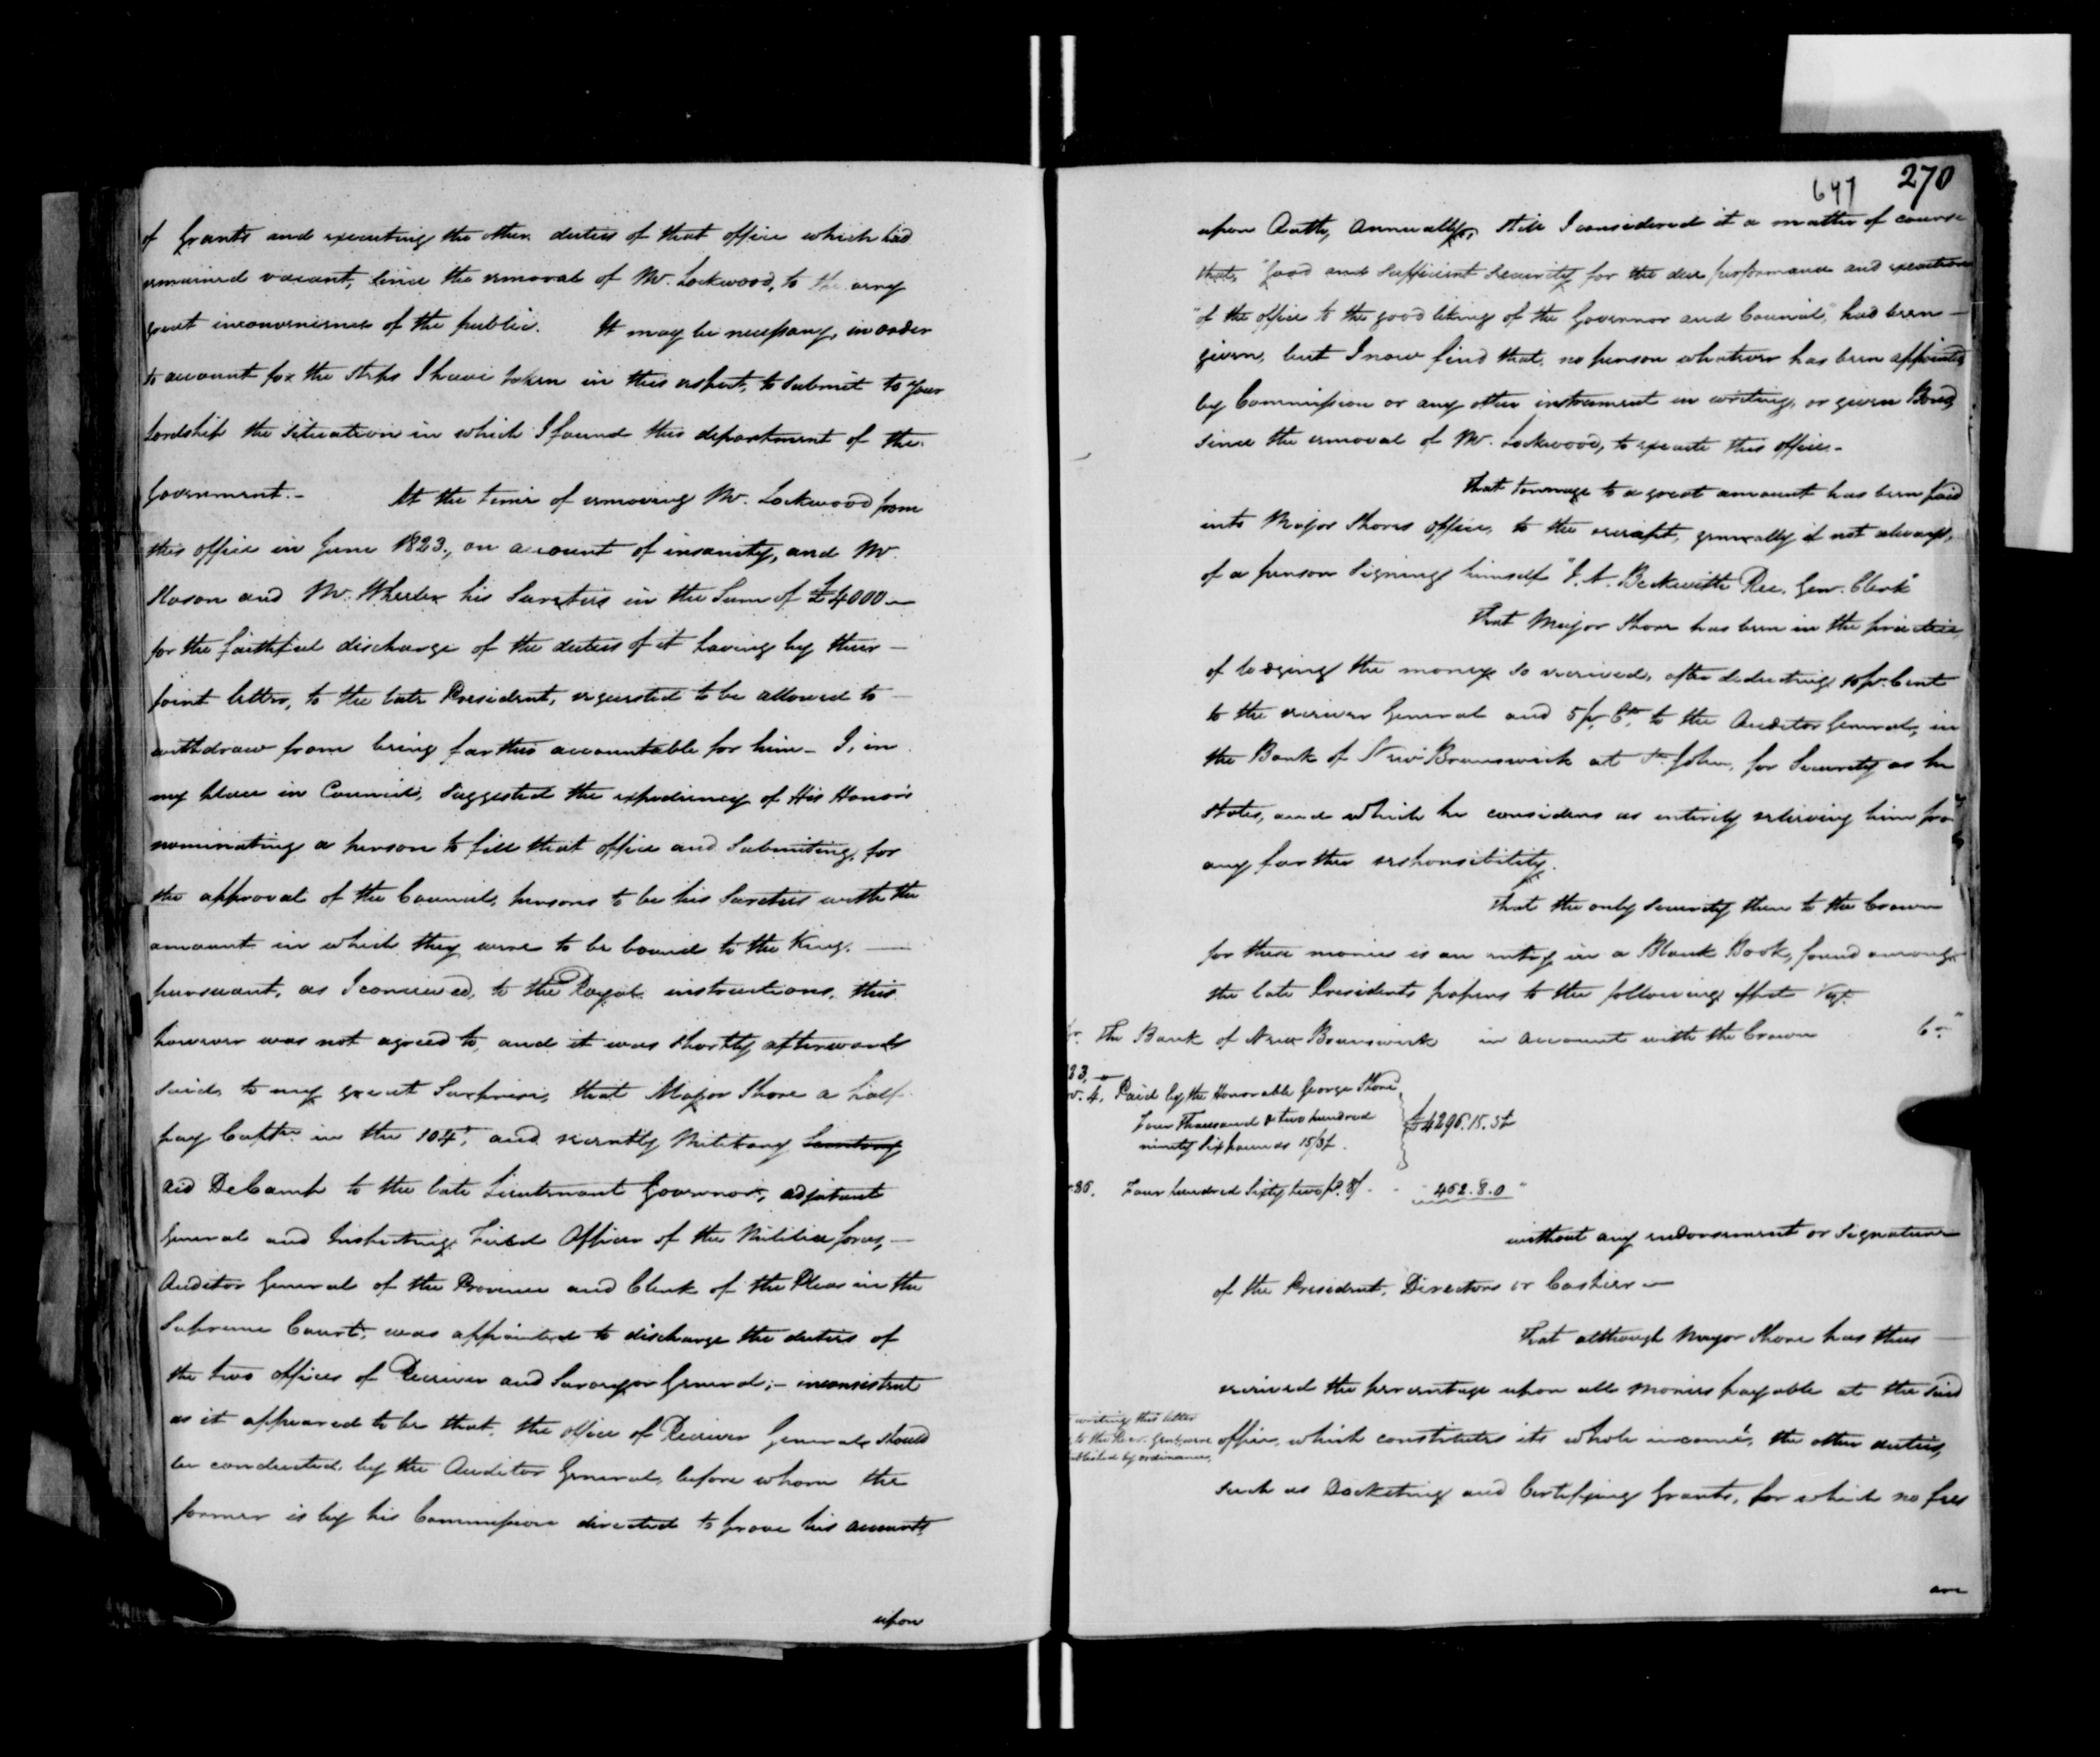 of Grants and executing the other duties of that office which had
remained vacant, since the removal of Mr. Lockwood, to the very
great inconvenience of the public. It may be necessary, in order
to account for the steps I have taken in this respect, to submit to your
Lordship the situation in which I found this department of the
Government.- At the time of removing Mr. Lockwood from
this office in June 1823, on account of insanity, and Mr.
Slason and Mr. Wheeler his Sureties in the Sum of £4000 —
for the faithful discharge of the duties of it having by their —
joint letter, to the late President, requested to be allowed to —
withdraw from being farther accountable for him - I, in
my place in Council, suggested the expediency of His Honor's
nominating a person to fill that office and Submitting, for
the approval of the Council, persons to be his Sureties with the
amount in which they were to be bound to the King. —
pursuant, as I conceived, to the Royal instructions, this
however was not agreed to, and it was shortly afterwards
said, to my great Surprise, that Major Shore a half
pay Captn. in the 104th, and recently Military
aid DeCamp to the late Lieutenant Governor, adjutant
General and Inspecting Field Officer of the Militia forces, —
Auditor General of the Province and Clerk of the Pleas in the
Supreme Court, was appointed to discharge the duties of
the two offices of Receiver and Surveyor General; - inconsistent
as it appeared to be that, the office of Receiver General should
be conducted by the Auditor General, before whom the
former is by his Commission directed to prove his accounts
upon
647 270
upon Oath, Annually, still I considered it a matter of course
that, "good and sufficient security for the due performance and execution
"of the office to the good liking of the Governor and Council," had been —
given, but I now find that, no person whatever has been appointed
by Commission or any other instrument in writing, or given Bond
since the removal of Mr. Lockwood, to execute this office.-
That tonnage to a great amount has been paid
into Major Shores office, to the receipt, generally if not always,
of a person signing himself "J. A. Beckwith Rec. Gen. Clerk"
That Major Shore has been in the practice,
of lodging the money so received, after deducting 10 pr. Cent
to the receiver General and 5 pr. Ct. to the Auditor General, in
the Bank of New Brunswick at St. John, for Security as he
states, and which he considers as entirely relieving him from
any farther responsibility.
That the only Security then to the Crown
for these monies is an entry in a Blank Book, found among
the late Presidents papers to the following effect Vizt.
The Bank of New Brunswick in account with the Crown Cr.
23.
4. Paid by the Honorable George Shore
Four Thousand & two hundred
ninety six pounds 15/3½. } £4296.15.3½
26. Four hundred Sixty two pd. 8/ - - 462.8.0 "
without any endorsement or signature
of the President, Directors or Cashier —
That although Major Shore has thus —
received the percentage upon all monies payable at the said
writing this letter
to the Recr. Genl. were
established by ordinance,
office, which constitutes its whole income, the other duties,
such as Docketing and Certifying Grants, for which no fees
are